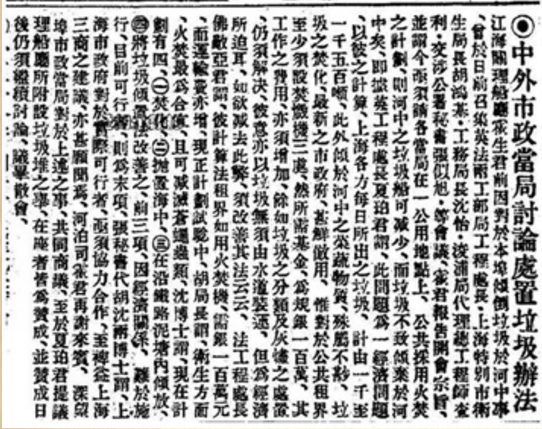 ◉中外市政當局討論處置垃圾辦法
江海關理船廳霍生君前因對於本埠傾倒垃圾於河中事
、曾於日前召集英法兩工部局工程處長、上海特別市衛
生局長胡鴻基、工務局長沈怡、浚浦局代理總工程師查
利、交涉公署秘書張似旭、等會議、霍君報告開會宗旨、
並謂今亟須請各當局在一公用地點上、公共採用火焚
之計劃、則河中之垃圾船可減少、而垃圾不致傾棄於河
中矣、即據英工程處長夏珀君謂、此問題為一經濟問題
、以彼之計算、上海各方每日所出之垃圾、計由一千至
一千五百噸、此外傾於河中之菜蔬物質、殊屬不尠、垃
圾之焚化、最新之市政府、甚鮮做用、惟對於公共租界
至少須設焚燬機三處、然所需基金、為規銀一百萬、其
工作之費用、亦須增加、餘如垃圾之分類及灰燼之處置
、仍須解決、彼意亦以垃圾無須由水道裝運、但為經濟
所迫耳、如欲減去此弊、須改善其法云云、法工程處長
佛敵亞君謂、彼計算法租界如用火焚機、需銀一百萬元
、而運輸費亦增、現正計劃試驗中、胡局長謂、衛生方面
、火焚最為合宜、且可減滅蒼蠅蟲類、沈博士謂、現在計
劃有四、㊀焚化、㊁拋置海中、㊂在沿鐵路泥塘內傾放、
㊃將垃圾傾置法改善之、前三項、因經濟關係、難於施
行、目前可行者、則為末項、張秘書代胡沈兩博士謂、上
海市政府對於實際可行者、亟須協力合作、至裨益上海
三商之建議、亦甚願聞焉、河泊司霍君再謝來賓、深望
埠市政當局對於上述之事、共同商議、至於夏珀君提議
理船廳所附設垃圾堆之舉、在座者皆為贊成、並贊成日
後仍須繼續討論、議畢散會、